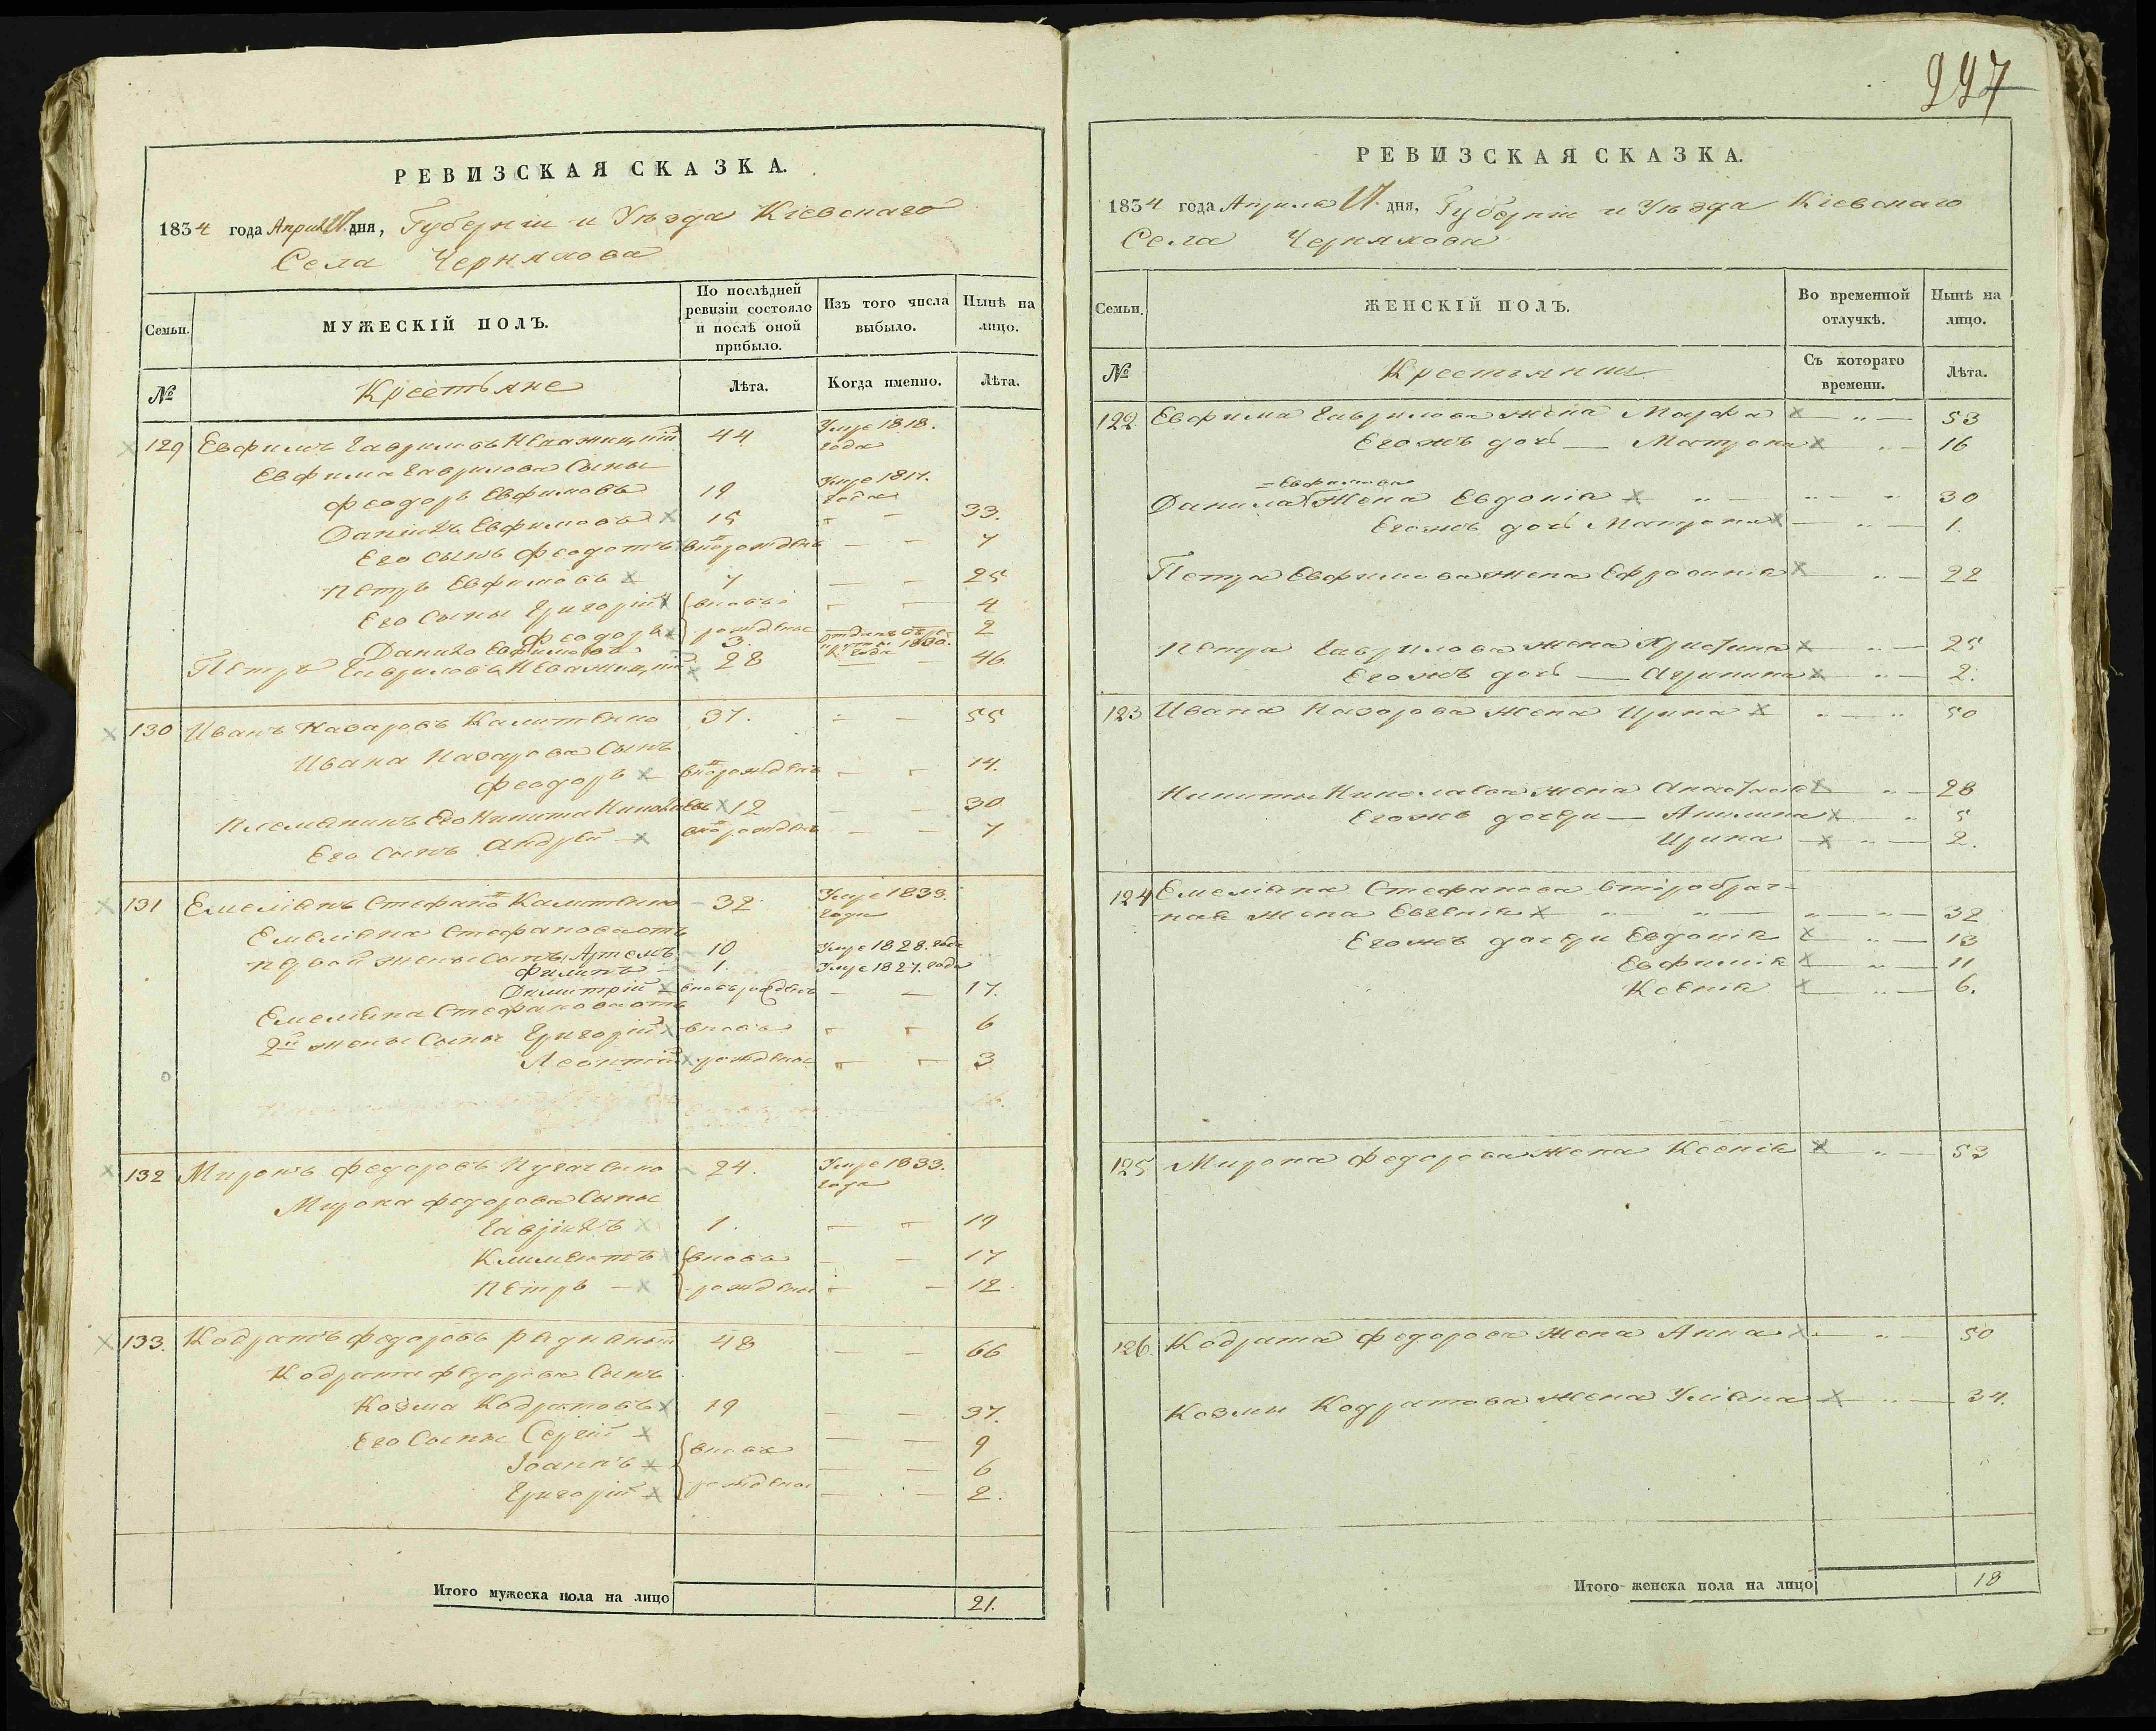 РЕВИЗСКАЯ СКАЗКА.
1834 года Апреля дня, Губерніи и Уѣзда Кіевскаго
Села Черняхова
Семьи. МУЖЕСКІЙ ПОЛЪ. По послѣдней ревизіи состояло и послѣ оной прибыло. Изъ того числа выбыло. Нынѣ на лицо.
№ Крестьяне Лѣта. Когда именно. Лѣта.
129 Евфимъ Гавриловъ 44 Умре 1818. года
Евфима Гаврилова Сыны
Феодоръ Евфимовъ 19 Умре 1817. года
Даніилъ Евфимовъ 15 — 33.
Его сынъ Феодотъ вновь рожденъ — — 7
Петръ Евфимовъ 7 — — 25
Его Сыны Григорій вновь — — 4
Феодоръ рожденые 2
Данило Евфимовъ 3. отданъ въ рекруты 1830. года
Петръ Гавриловъ 28 — — 46
130 Иванъ Назаровъ Калитенко 37. — — 55
Ивана Назарова Сынъ
Феодоръ вновь рожденъ — — 14.
Племянникъ Его Никита Николаевъ 12 — — 30
Его Сынъ Андрей вновь рожденъ — — 7
131 Емеліянъ Стефановъ Калитенко 32 Умре 1833. года
Емеліяна Стефанова отъ
первой жены Сыны Артемъ 10 Умре 1828. года
Филипъ 1. Умре 1827. года
Димитрій вновь рожденъ — — 17.
Емеліяна Стефанова отъ
2й жены Сыны Григорій вновь — — 6
Леонтій рожденые — — 3
132 Миронъ Федоровъ 24. Умре 1833. года
Мирона Федорова Сыны
Гавріилъ 1. — — 19
Климентъ вновь — — 17
Петръ рождены — — 12
133. Кодратъ Федоровъ 48 — — 66
Кодрата Федорова Сынъ
Козма Кодратовъ 19 — — 37.
Его Сыны Сергій вновь — — 9
Іоаннъ — — 6
Григорій рожденые — — 2.
Итого мужеска пола на лицо 21.
997
РЕВИЗСКАЯ СКАЗКА.
1834 года Апреля дня, Губерніи и Уѣзда Кіевскаго
Села Черняхова
Семьи. ЖЕНСКІЙ ПОЛЪ. Во временной отлучкѣ. Нынѣ на лицо.
№ Крестьянки Съ котораго времени. Лѣта.
122 Евфима Гаврилова жена Марфа " — 53
Его жъ дочь — Матрона " — 16
Евфимова
Данила жена Евдокія " — " — " 30
Его жъ дочь Матрона — " — 1.
Петра Евфимова жена Ефросинія " — 22
Петра Гаврилова жена Христина " — 25
Его жъ дочь — Агрипина " — 2.
123 Ивана Назарова жена Ирина " — " 50
Никиты Николаева жена Анастасія " — 28
Его жъ дочери — Акилина " 5
Ирина — " — 2.
124 Емеліяна Стефанова второбрач-
ная жена Евгенія " — " — " — " — 32
Его жъ дочери Евдокія " — 13
Евфимія " — 11
Ксенія " — 6.
125 Мирона Федорова жена Ксенія " — 53
126. Кодрата Федорова жена Анна " — 50
Козмы Кодратова жена Уліяна — " — 34.
Итого женска пола на лицо 18